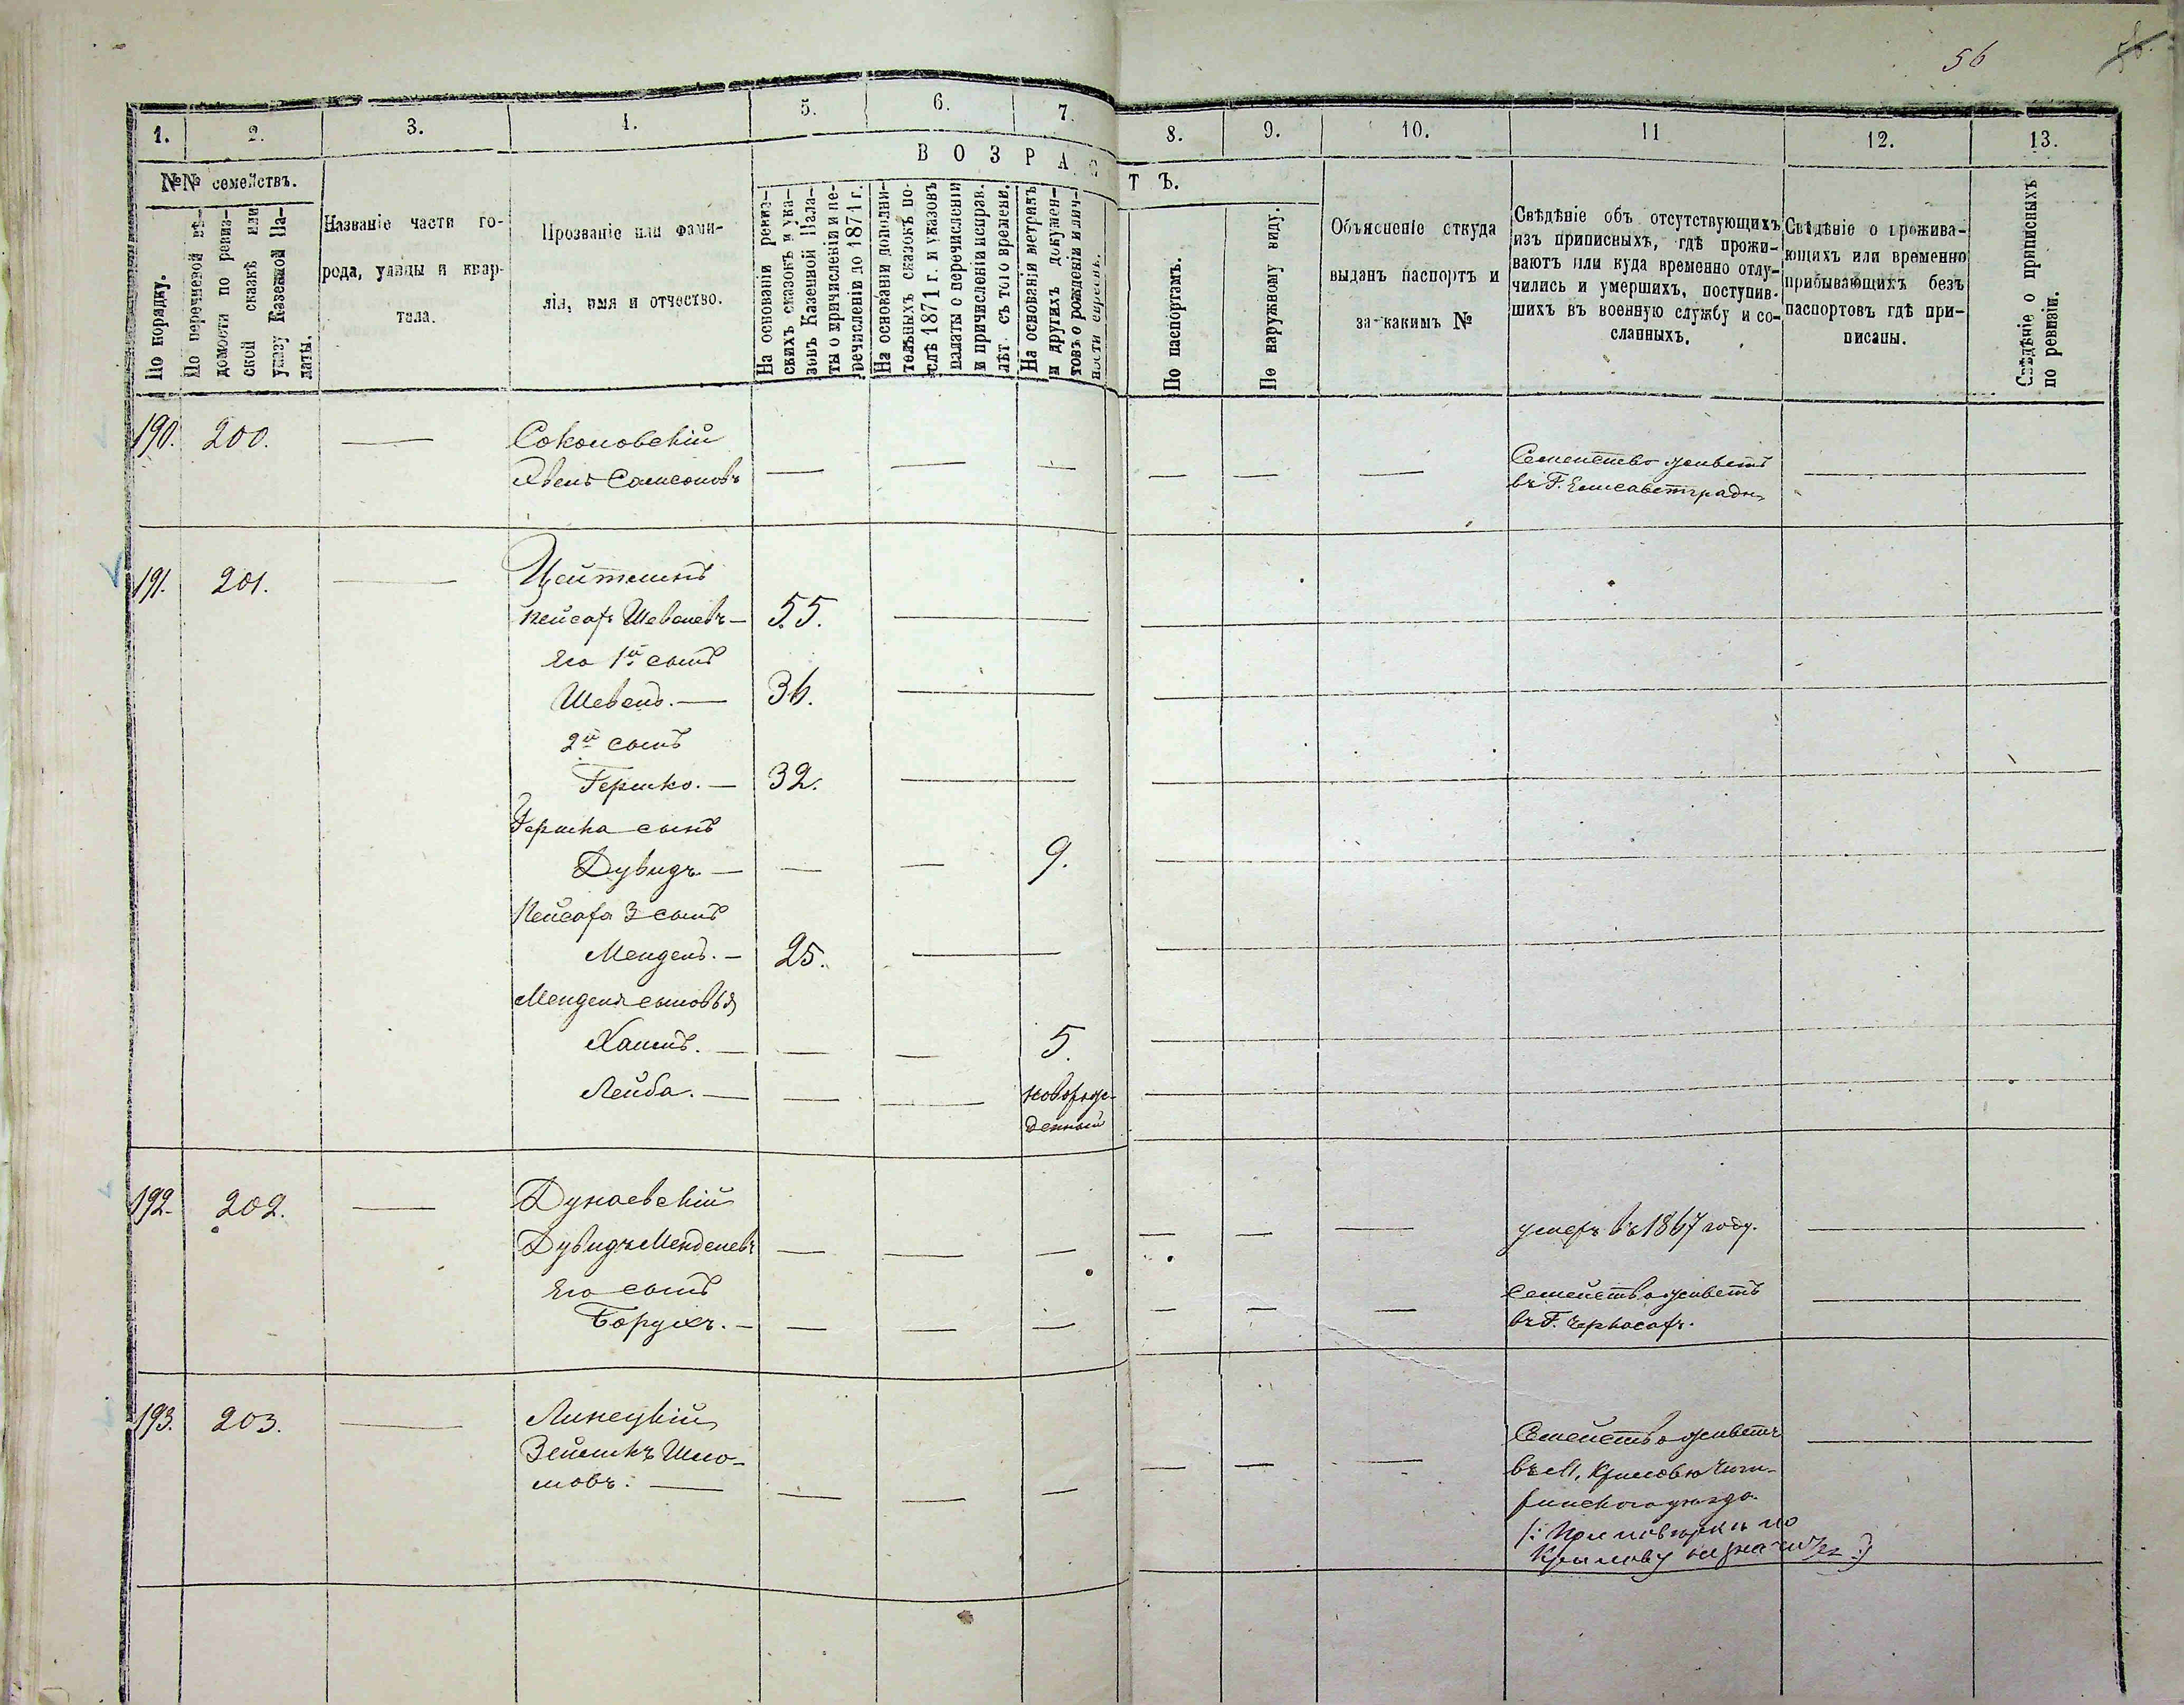 56
56.
1.
2.
3.
4.
5.
6.
7.
8.
9.
10.
11
12.
13.
В О З Р А С
Т Ъ.
№№ семействъ.
По порядку.
По перечневой вѣ-
домости по ревиз-
ской сказкѣ или
указу Казенной Па-
латы.
Названіе части го-
рода, улицы и квар-
тала.
Прозваніе или фами-
лія, имя и отчество.
На основаніи ревиз-
скихъ сказокъ и ука-
зовъ Казенной Пала-
ты о причисленіи и пе-
речисленіи до 1871 г.
На основаніи дополни-
тельныхъ сказокъ по-
слѣ 1871 г. и указовъ
палаты о перечисленіи
и причисленіи исправ.
лѣт. съ того времени.
На основаніи метрикъ
и другихъ докумен-
товъ о рожденіи и лич-
ности евреевъ.
По паспортамъ.
По наружному виду.
Объясненіе откуда
выданъ паспортъ и
за какимъ №
Свѣдѣніе объ отсутствующихъ
изъ приписныхъ, гдѣ прожи-
ваютъ или куда временно отлу-
чились и умершихъ, поступив-
шихъ въ военную службу и со-
сланныхъ.
Свѣдѣніе о прожива-
ющихъ или временно
прибывающихъ безъ
паспортовъ гдѣ при-
писаны.
Свѣдѣніе о приписныхъ
по ревизіи.
190. 200. Соколовскій
Хвель Самсоновъ
Семейство живетъ
въ Г. Елисаветградѣ
191. 201. Цейтлинъ
Пейсахъ Шевелевъ — 55.
Его 1й сынъ
Шевель. — 36.
2й сынъ
Гершко. — 32.
Гершка сынъ
Дувидъ — 9.
Пейсаха 3 сынъ
Мендель. — 25.
Менделя сыновья
Хаимъ. — 5.
Лейба. — новорож-
денный
192. 202. Дунаевскій
Дувидъ Менделевъ
умеръ въ 1867 году.
Его сынъ
Борухъ. —
Семейство живетъ
въ Г. Черкасахъ.
193. 203. Липецкій
Зейликъ Шмо-
мовъ. —
Семейство живетъ
въ М. Крыловѣ Чиги-
ринскаго уѣзда.
/: При повѣркѣ по
Крылову не значится :/